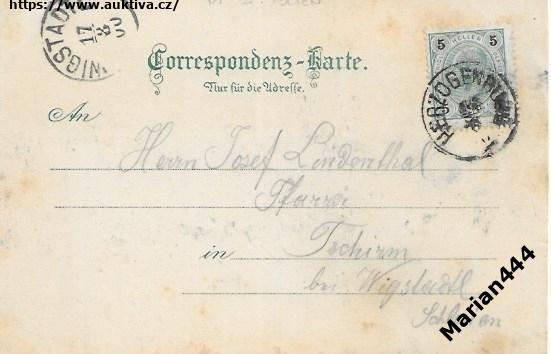 https://www.auktiva.cz/
WIGSTADTL
17
8
00
5 HELLER 5
Correspondenz-Karte.
Nur für die Adresse.
HERZOGENBURG
An
Herrn Josef Lindenthal
Pfarrei
in Tschirm
bei Wigstadtl
Schlesien
Marian444